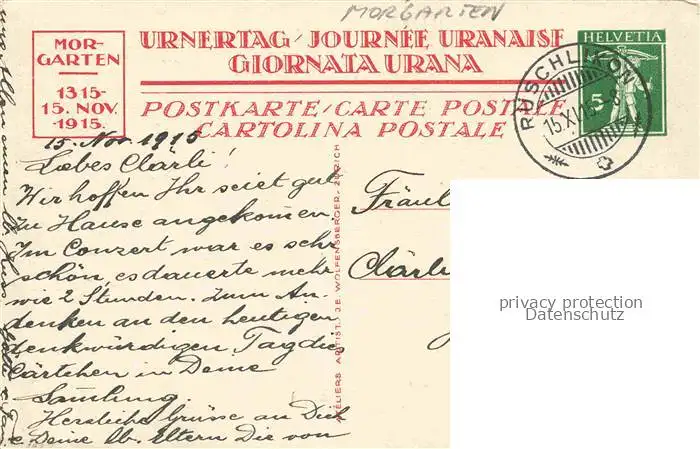 MORGARTEN
MOR-
GARTEN
1315-
15. NOV.
-1915.
URNERTAG / JOURNÉE URANAISE
GIORNATA URANA
POSTKARTE / CARTE POSTALE
CARTOLINA POSTALE
HELVETIA
5
RÜSCHLIKON
15.XI.15.-8
15. Nov. 1915
Liebes Clärli!
Wir hoffen Ihr seiet gut
zu Hause angekomen.
Im Conzert war es sehr
schön, es dauerte mehr
wie 2 Stunden. Zum An-
denken an den heutigen
denkwürdigen Tag dies
Cärtchen in Deine
Samlung.
Herzliche Grüsse an Dich
& Deine lb. Eltern Die von
Fräul
Clärli
ATELIERS ARTIST. J.E. WOLFENSBERGER - ZÜRICH
privacy protection
Datenschutz